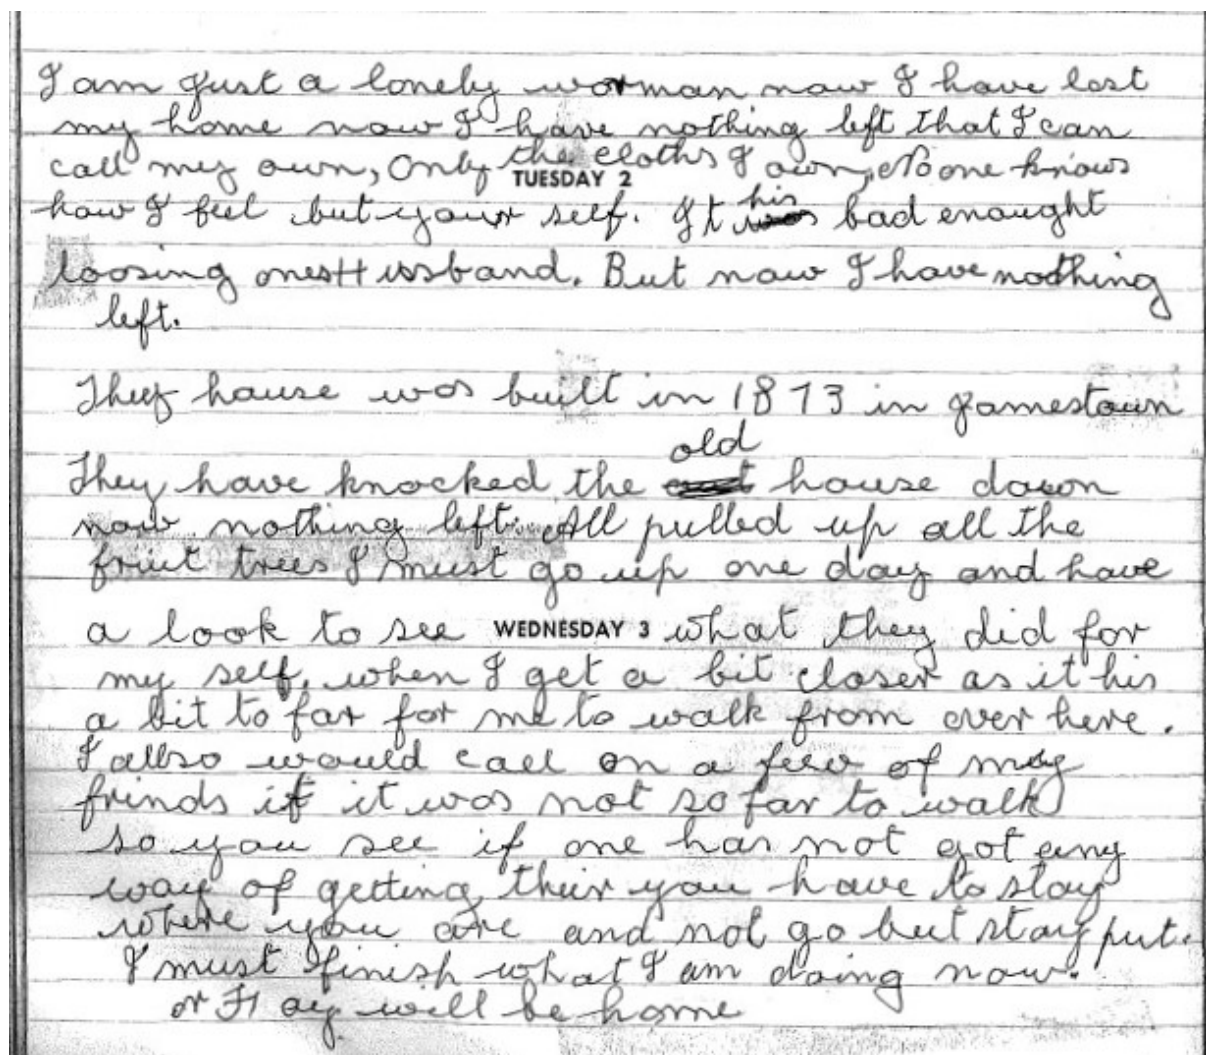 I am just a lonely worman now I have lost
my home now I have nothing left that I can
call my own, Only the cloths I own, No one knows
TUESDAY 2
how I feel but your self. It his bad enought
loosing ones Hussband. But now I have nothing
left.
They house was built in 1873 in Jamestown
They have knocked the old house down
now nothing left. All pulled up all the
friut trees I must go up one day and have
a look to see WEDNESDAY 3 what they did for
my self, when I get a bit closer as it his
a bit to far for me to walk from over here.
I allso would call on a few of my
frinds if it was not so far to walk
so you see if one has not got any
way of getting thier you have to stay
where you are and not go but stay put.
I must finish what I am doing now.
or will be home